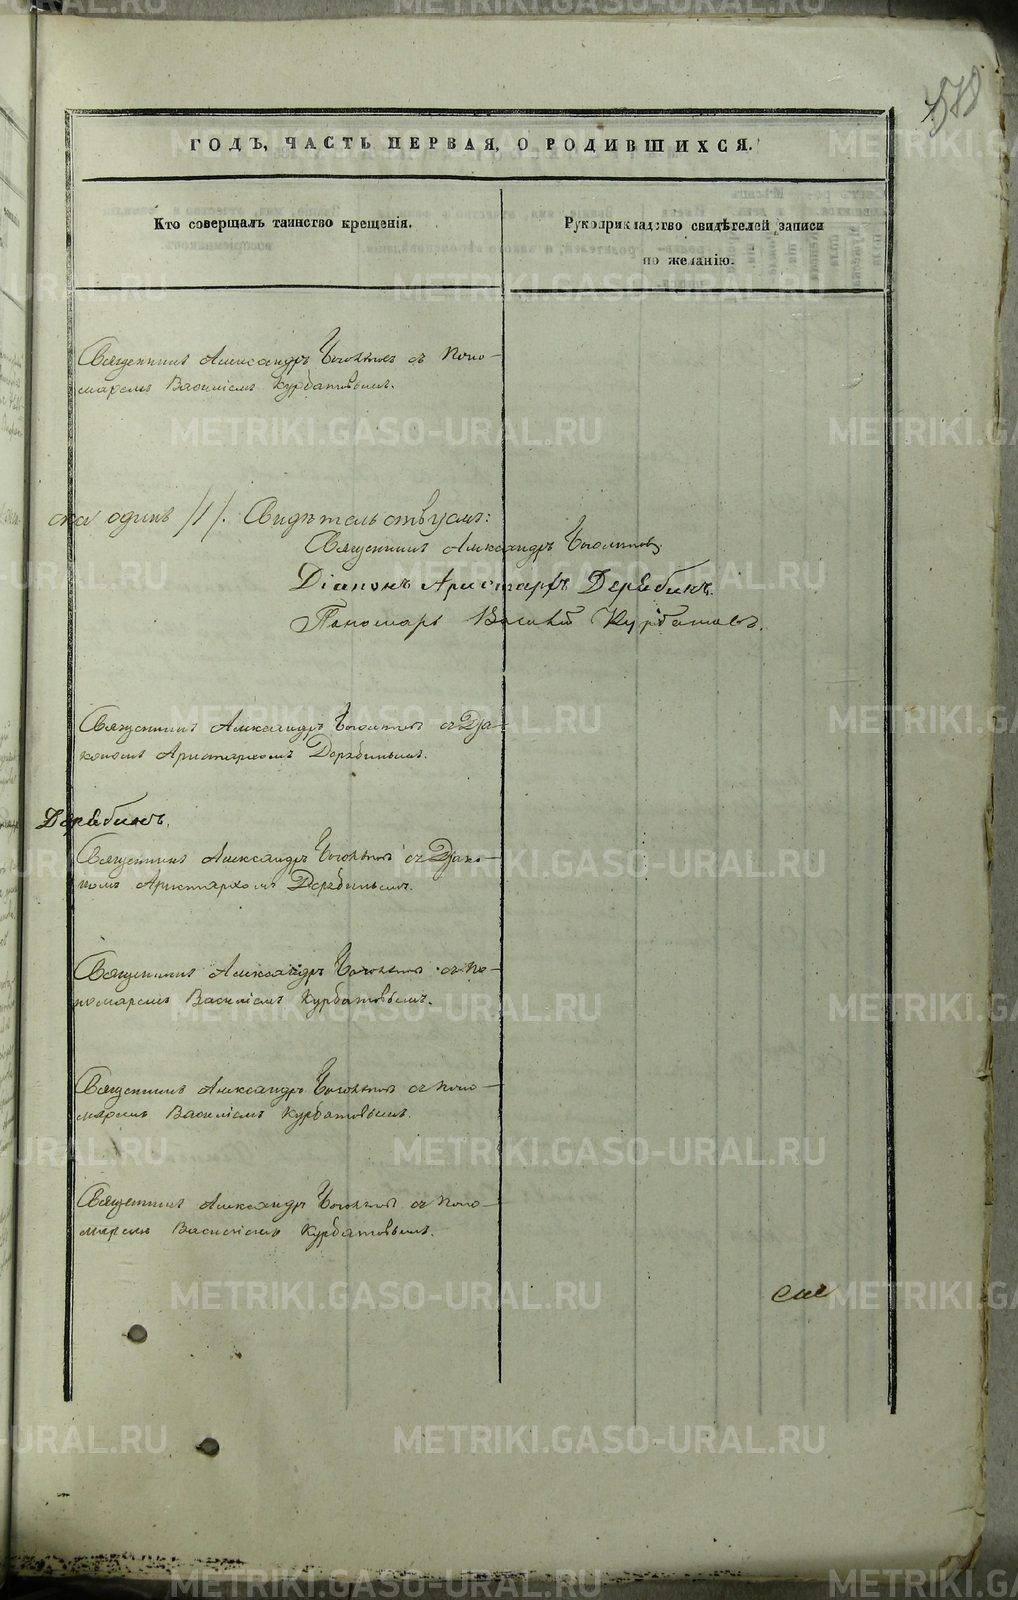 ГОДЪ, ЧАСТЬ ПЕРВАЯ, О РОДИВШИХСЯ.
Кто совершалъ таинство крещенія.
Рукоприкладство свидѣтелей записи
по желанію.
Священникъ Александръ съ Поно-
маремъ Василіемъ Курбатовымъ.
одинъ /1/. Свидѣтельствуемъ:
Священникъ Александръ
Діаконъ Аристархъ Дерябинъ.
Пономарь Василій Курбатовъ.
Священникъ Александръ съ Дья-
кономъ Аристархомъ Дерябинымъ.
Дерябинъ.
Священникъ Александръ съ Дьяко-
номъ Аристархомъ Дерябинымъ.
Священникъ Александръ съ По-
номаремъ Василіемъ Курбатовымъ.
Священникъ Александръ съ Поно-
маремъ Василіемъ Курбатовымъ.
Священникъ Александръ съ Поно-
маремъ Василіемъ Курбатовымъ.
METRIKI.GASO-URAL.RU